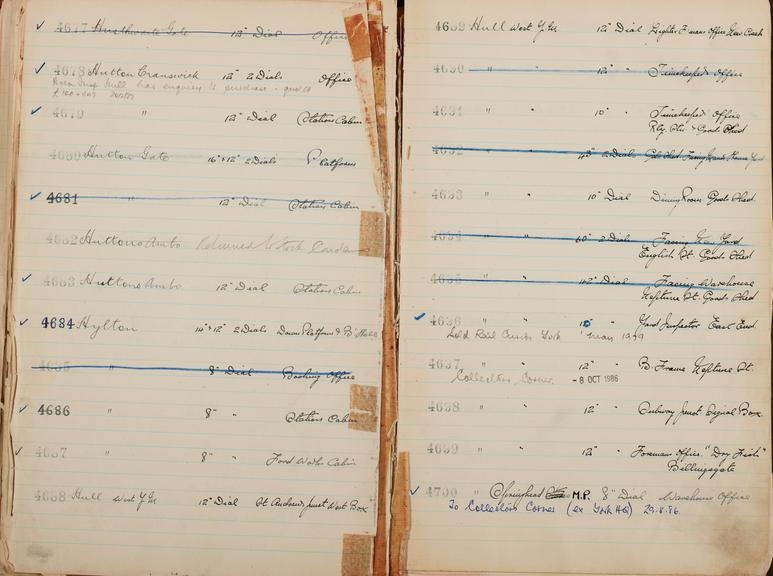 4677 Husthwaite Gate 12" Dial Office
4678 Hutton Cranswick 12" 2 Dials Office
Hull has enquiry to purchase
4679 " 12" Dial Station Cabin
4680 Hutton Gate 16" & 12" 2 Dials Platform
4681 " 12" Dial Station Cabin
4682 Huttons Ambo Returned to Stock
4683 Huttons Ambo 12" Dial Station Cabin
4684 Hylton 14" & 12" 2 Dials Down Platform & B. Hall
4685 " 8" Dial Booking Office
4686 " 8" " Station Cabin
4687 " 8" " Ford Works Cabin
4688 Hull West Y.M. 12" Dial St Andrews Junct West Box
4689 Hull West Y.M. 12" Dial Lighter Foreman Office
4690 " " 12" " Timekeeper's Office
4691 " " 10" " Timekeeper's Office
Rly. Stn. & Goods Shed
4692 2 Dials
4693 " " 10" Dial Dining Room Goods Shed
4694 " " 60" 2 Dials Facing Yard
English St. Goods Shed
4695 " " Dial Facing Warehouse
Neptune St. Goods Shed
4696 " " 12" " Yard Inspector East End
Sold Rail Curios York Mar 1979
4697 " " 12" " B. Frame Neptune St.
Collectors Corner. - 8 OCT 1986
4698 " " 12" " Subway Junct. Signal Box
4699 " " 12" " Foreman Office "Dry Fish"
Billingsgate
4700 " Springhead M.P. 8" Dial Warehouse Office
To Collectors Corner (ex York HQ) 29.8.86.